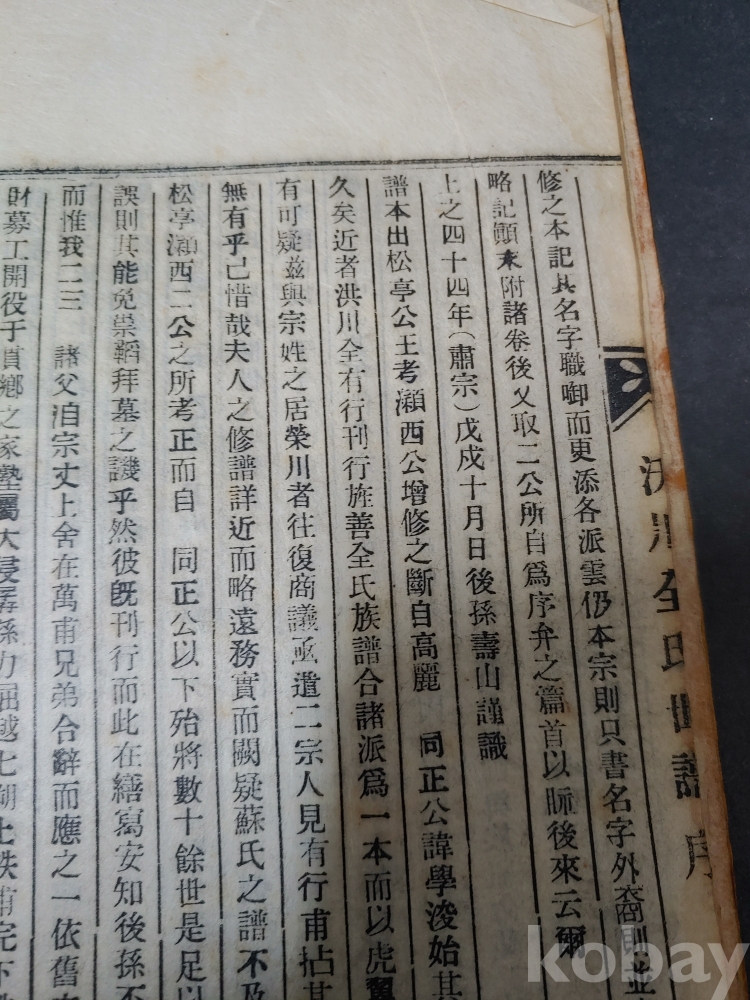 全氏世譜序
修之本記其名字職啣而更添各派雲仍本宗則只書名字外裔則並
略記顚末附諸卷後又取二公所自爲序弁之篇首以眎後來云爾
上之四十四年(肅宗)戊戌十月日後孫壽山謹識
譜本出松亭公王考瀨西公增修之斷自高麗 同正公諱學浚始其
久矣近者洪川全有行刊行旌善全氏族譜合諸派爲一本而以虎翼
有可疑兹與宗姓之居榮川者往復商議亟遣二宗人見有行甫拈其
無有乎己惜哉夫人之修譜詳近而略遠務實而闕疑蘇氏之譜不及
松亭瀨西二公之所考正而自 同正公以下殆將數十餘世是足以
誤則其能免祟韜拜墓之譏乎然彼旣刊行而此在繕寫安知後孫不
而惟我二三 諸父洎宗丈上舍在萬甫兄弟合辭而應之一依舊
財募工開役于 鄕之家塾屬大 孫力屈越七朔上
kobay